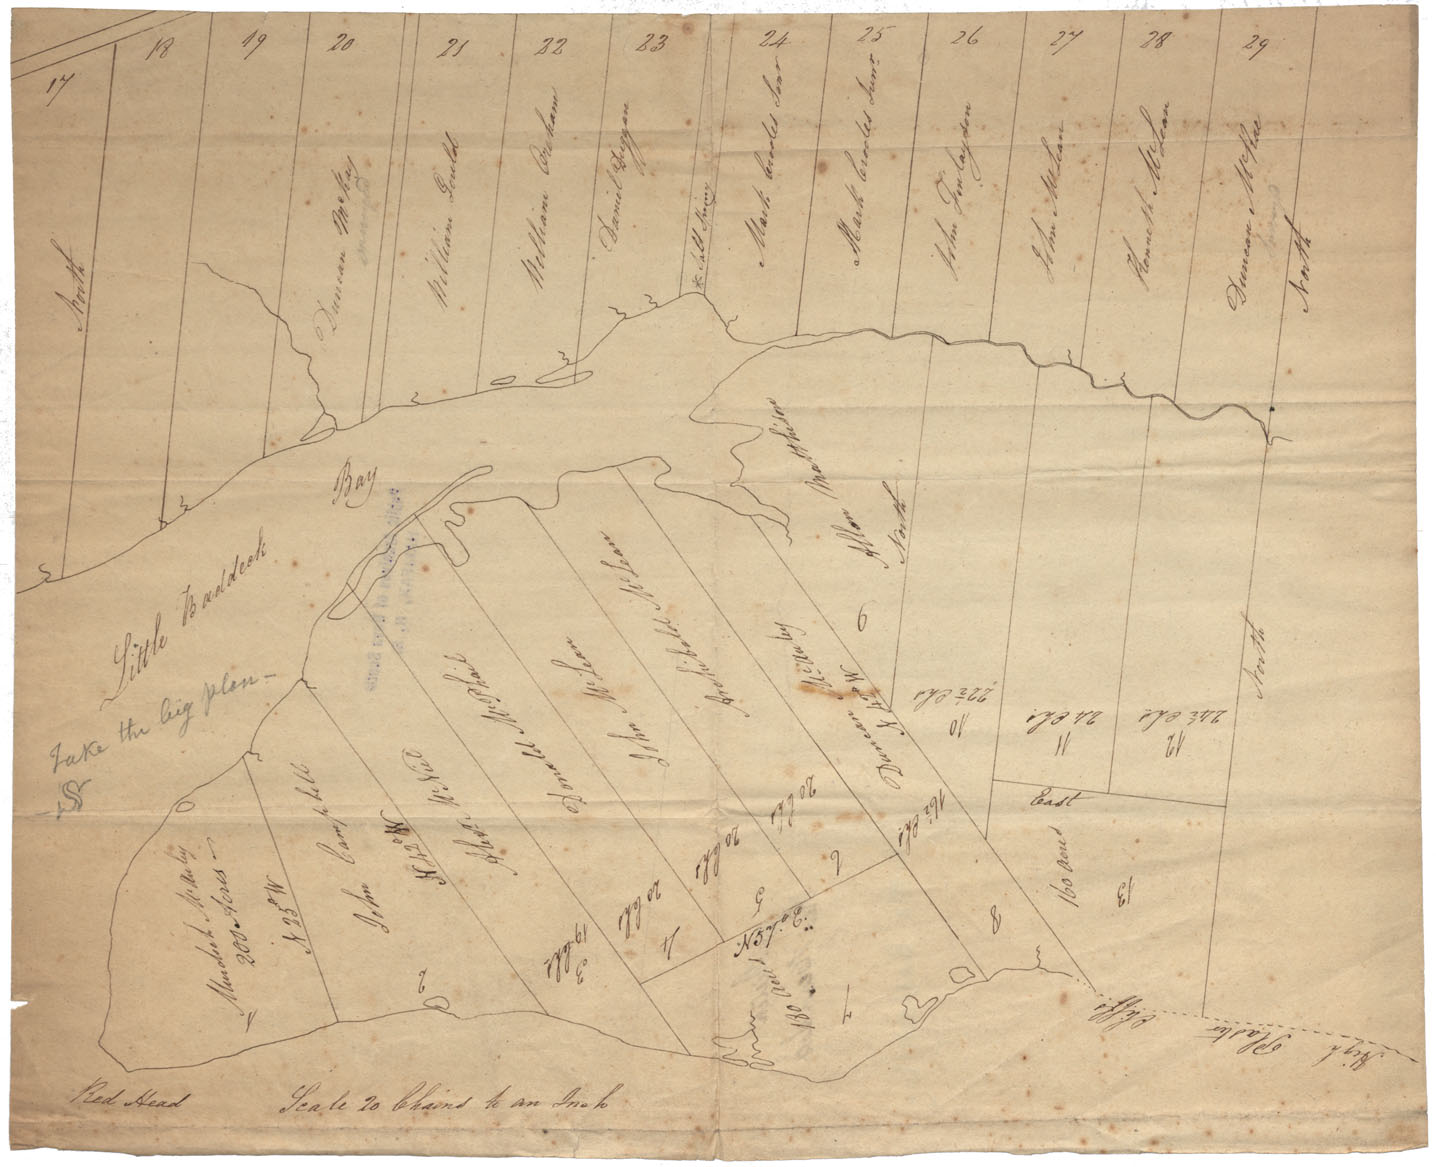 17
18
19
20
21
22
23
24
25
26
27
28
29
North
Duncan McKay
William Gould
William Graham
Daniel Duggan
* Salt Spring
Mark Crooles Senr
Mark Crooles Junr
John Finlayson
John McLean
Kenneth McLean
Duncan McRae
North
Little Baddeck
Bay
Take the big plan -
Allan Mathhison
9
North
North
22½ Chs
10
24 Chs
11
24½ Chs
12
East
160 acres
13
Murdick McAuley
200 Acres
1
N 25° W
John Campbell
2
N 42° W
Archd McNiel
3
19 Chs.
Donald McPhail
20 Chs
4
John McLean
20 Chs
5
Archibald McLean
20 Chs
6
Duncan McAuley
N 42° W
16½ Chs
8
180 acres
7
High Plaster Cliffs
Red Head
Scale 20 Chains to an Inch